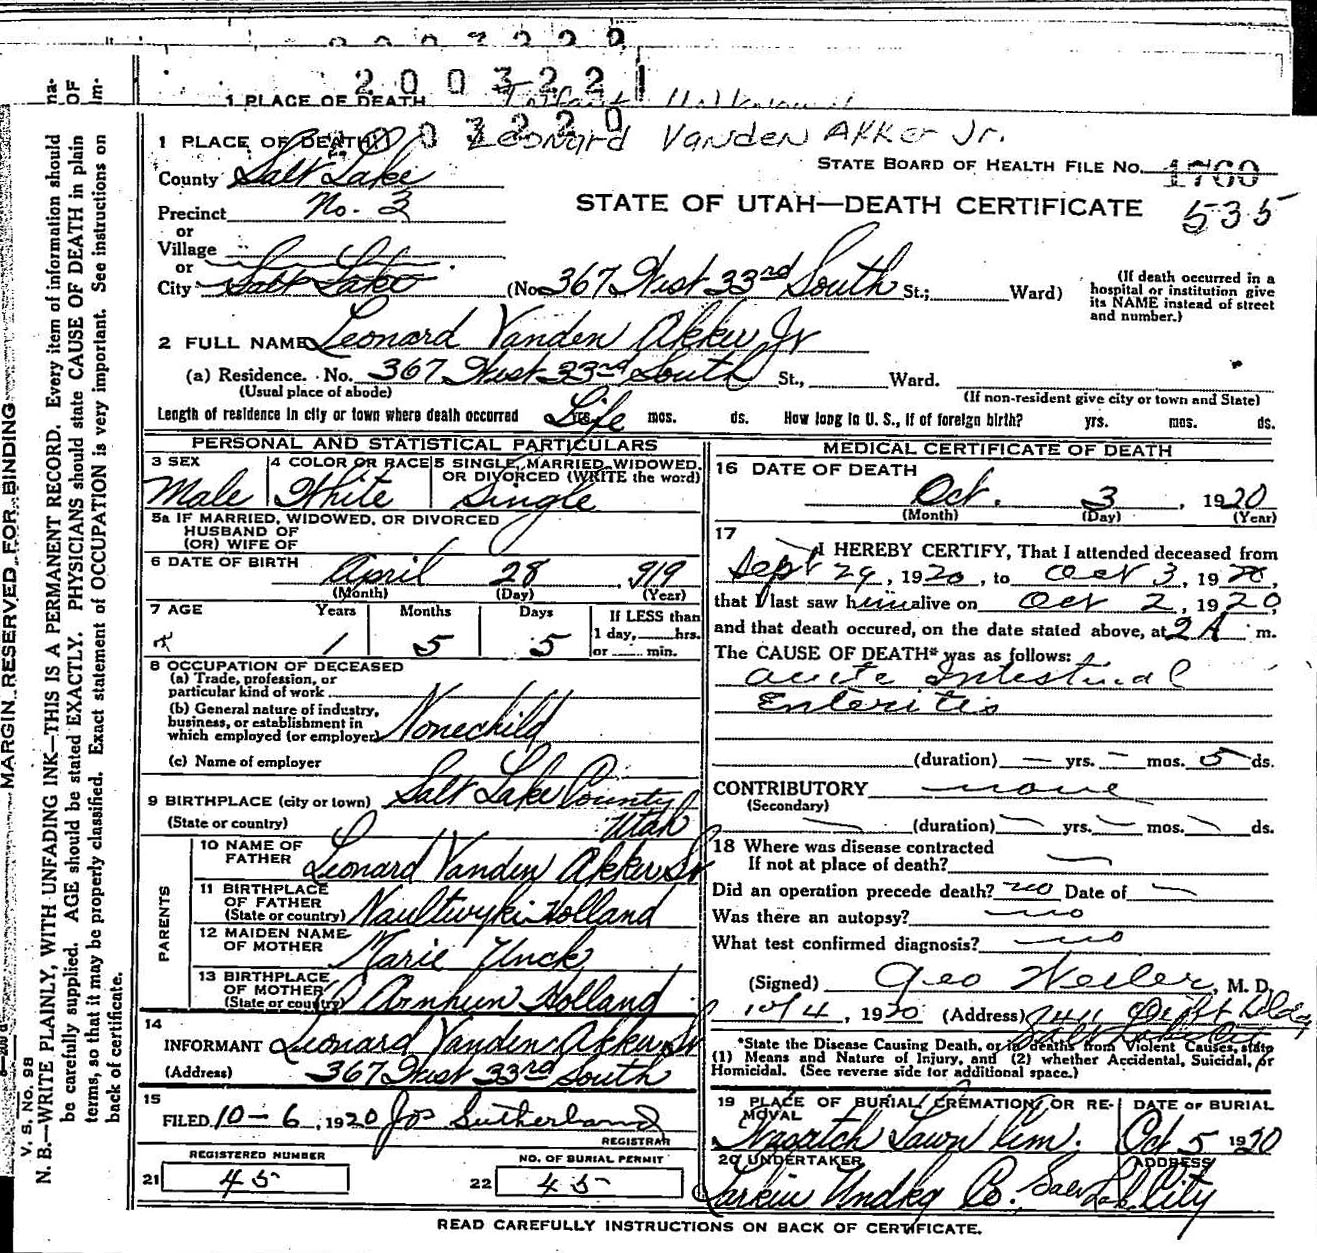 2003221
1 PLACE OF DEATH
2003220
Leonard Vanden Akker Jr.
1 PLACE OF DEATH
STATE BOARD OF HEALTH FILE No. 1760
County Salt Lake
535
Precinct No. 3
STATE OF UTAH—DEATH CERTIFICATE
or
Village
or
City Salt Lake (No. 367 West 33rd South St.; Ward)
(If death occurred in a hospital or institution give its NAME instead of street and number.)
2 FULL NAME Leonard Vanden Akker Jr
(a) Residence. No. 367 West 33rd South St., Ward.
(Usual place of abode)
(If non-resident give city or town and State)
Length of residence in city or town where death occurred Life yrs. mos. ds. How long in U. S., if of foreign birth? yrs. mos. ds.
PERSONAL AND STATISTICAL PARTICULARS
3 SEX
Male
4 COLOR OR RACE
White
5 SINGLE, MARRIED, WIDOWED, OR DIVORCED (WRITE the word)
Single
5a IF MARRIED, WIDOWED, OR DIVORCED
HUSBAND OF
(OR) WIFE OF
6 DATE OF BIRTH April 28, 919
(Month) (Day) (Year)
7 AGE Years Months Days If LESS than
1 5 5 1 day, hrs.
or min.
8 OCCUPATION OF DECEASED
(a) Trade, profession, or
particular kind of work
(b) General nature of industry,
business, or establishment in
which employed (or employer) None child
(c) Name of employer
9 BIRTHPLACE (city or town) Salt Lake County
(State or country) Utah
PARENTS
10 NAME OF
FATHER Leonard Vanden Akker Sr
11 BIRTHPLACE
OF FATHER
(State or country) Naultwyk Holland
12 MAIDEN NAME
OF MOTHER Marie Unck
13 BIRTHPLACE
OF MOTHER
(State or country) Arnhun Holland
14
INFORMANT Leonard Vanden Akker Sr
(Address) 367 West 33rd South
15
FILED 10-6, 1920 Jos Sutherland
REGISTRAR
REGISTERED NUMBER
21 45
NO. OF BURIAL PERMIT
22 45
MEDICAL CERTIFICATE OF DEATH
16 DATE OF DEATH
Oct. 3, 1920
(Month) (Day) (Year)
17
I HEREBY CERTIFY, That I attended deceased from
Sept 29, 1920, to Oct 3, 1920,
that I last saw him alive on Oct 2, 1920,
and that death occured, on the date stated above, at 2 A m.
The CAUSE OF DEATH* was as follows:
acute Intestinal
Enteritis
(duration) — yrs. — mos. 5 ds.
CONTRIBUTORY none
(Secondary)
(duration) yrs. mos. ds.
18 Where was disease contracted
If not at place of death?
Did an operation precede death? no Date of
Was there an autopsy? no
What test confirmed diagnosis? no
(Signed) Geo Weiler, M. D.
10/4, 1920 (Address)
*State the Disease Causing Death, or in deaths from Violent Causes, state
(1) Means and Nature of Injury, and (2) whether Accidental, Suicidal, or
Homicidal. (See reverse side for additional space.)
19 PLACE OF BURIAL, CREMATION, OR REMOVAL
Wasatch Lawn Cem.
DATE OF BURIAL
Oct 5 1920
20 UNDERTAKER
Larkin Undkg Co.
ADDRESS
Salt Lake City
READ CAREFULLY INSTRUCTIONS ON BACK OF CERTIFICATE.
MARGIN RESERVED FOR BINDING
V. S. No. 98
N. B.—WRITE PLAINLY, WITH UNFADING INK—THIS IS A PERMANENT RECORD. Every item of information should
be carefully supplied. AGE should be stated EXACTLY. PHYSICIANS should state CAUSE OF DEATH in plain
terms, so that it may be properly classified. Exact statement of OCCUPATION is very important. See instructions on
back of certificate.